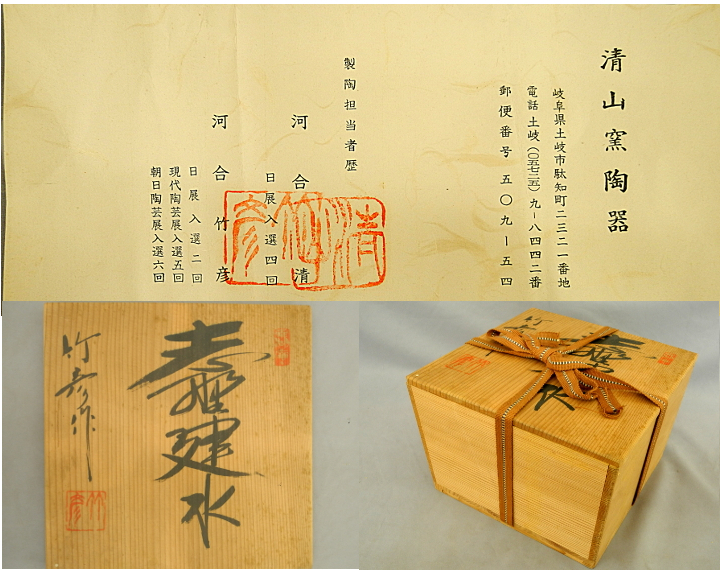 清山窯陶器
岐阜県土岐市駄知町二三二一番地
電話土岐(〇五七二五)九-八四四二番
郵便番号 五〇九-五四
製陶担当者歴
河合 清
日展入選四回
河合竹彦
日展入選二回
現代陶芸展入選五回
朝日陶芸展入選六回
清
竹
彦
志野建水
竹彦作
竹彦